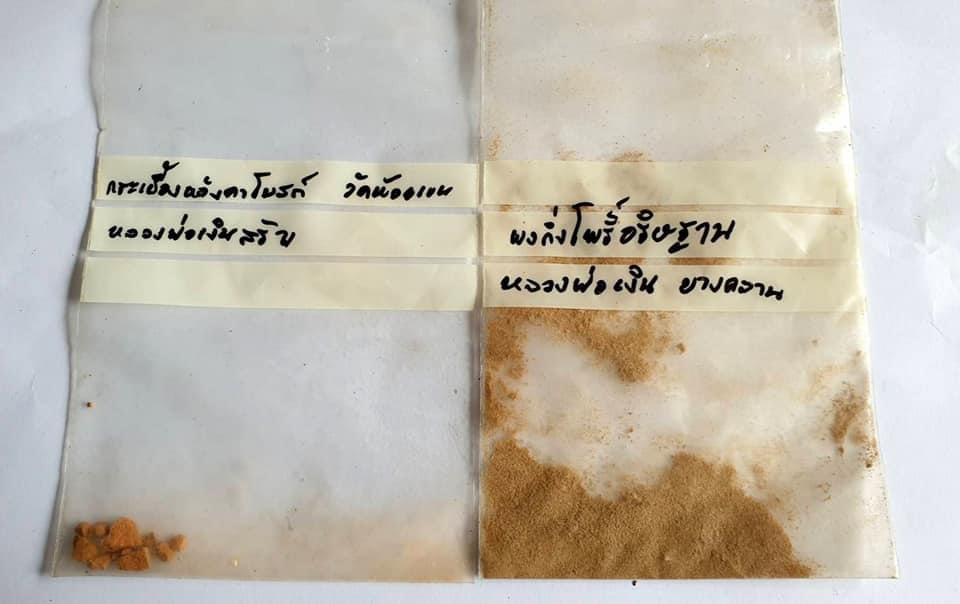 กระเบื้องหลังคาโบสถ์ วัดห้วยเขน
หลวงพ่อเงินสร้าง
ผงกิ่งโพธิ์อธิษฐาน
หลวงพ่อเงิน บางคลาน